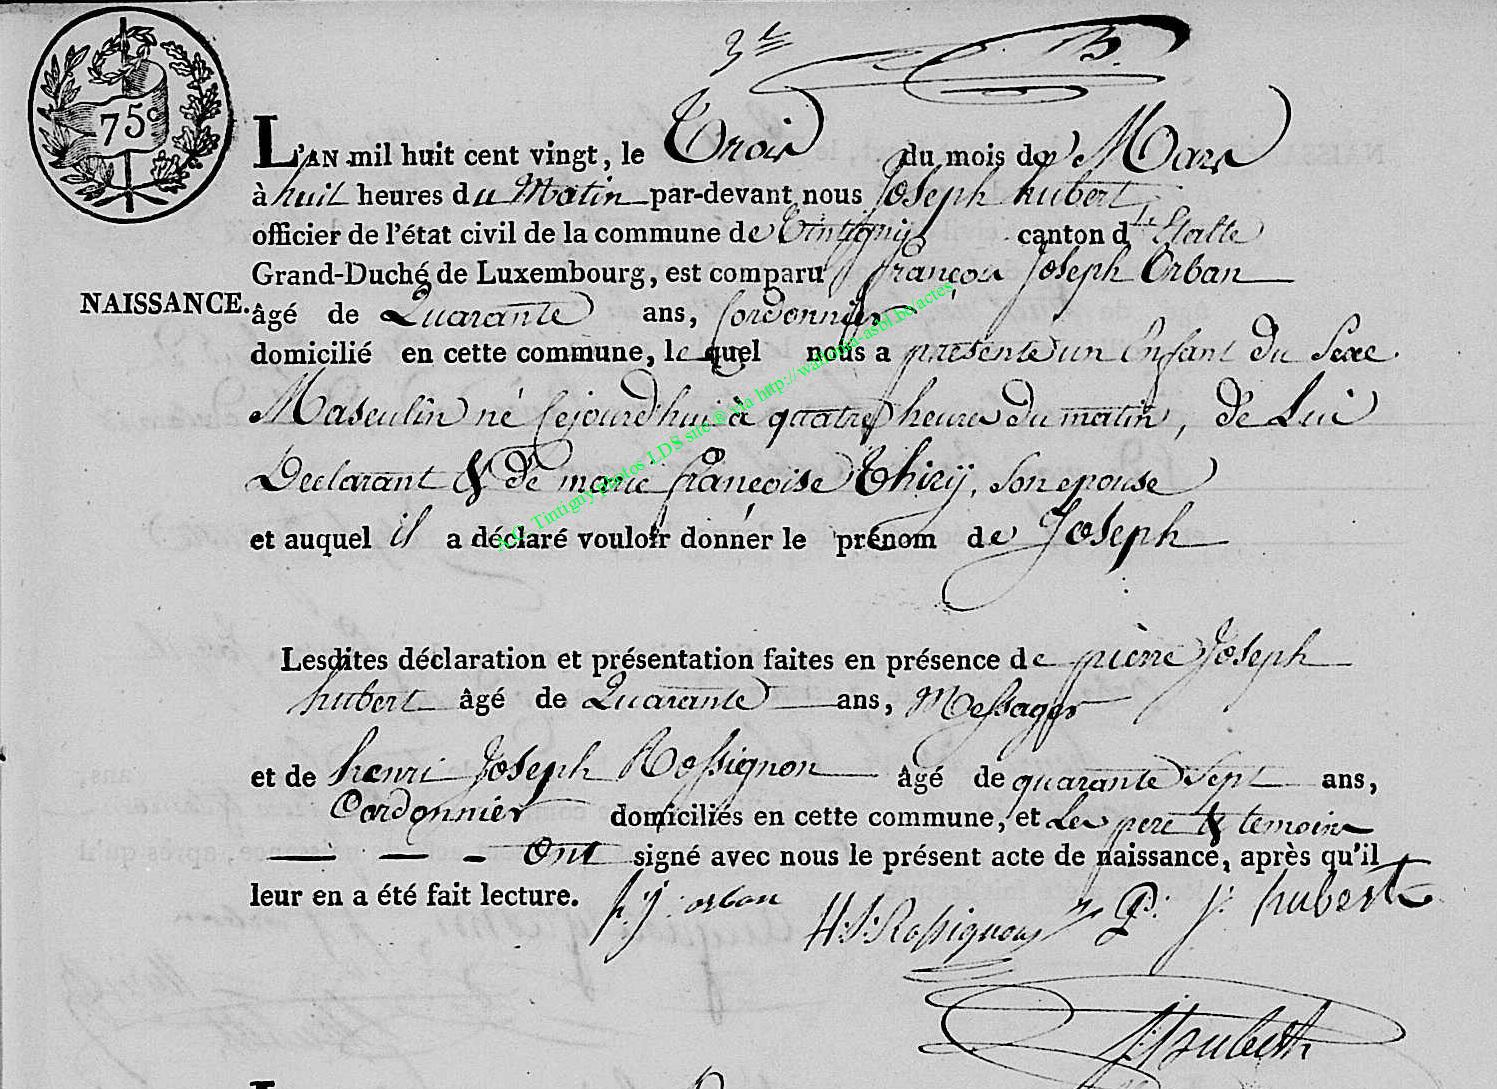 75c
3e
L'AN mil huit cent vingt, le Trois du mois de Mars
à huit heures du Matin par-devant nous Joseph hubert
officier de l'état civil de la commune de Tintigny canton d'Etalle
Grand-Duché de Luxembourg, est comparu françois Joseph Orban
NAISSANCE. âgé de Quarante ans, Cordonnier
domicilié en cette commune, le quel nous a présenté un Enfant du Sexe
Masculin né Cejourd'hui à quatre heures du matin, de Lui
Declarant & de marie françoise Thiry, son epouse
et auquel il a déclaré vouloir donner le prénom de Joseph
A.C. Tintigny photos LDS site ® via http://wallonia-asbl.be/actes
Lesdites déclaration et présentation faites en présence de pierre Joseph
hubert âgé de Quarante ans, Messager
et de henri Joseph Rossignon âgé de quarante Sept ans,
Cordonnier domiciliés en cette commune, et Les pere & temoins
ont signé avec nous le présent acte de naissance, après qu'il
leur en a été fait lecture. f. j: orban
H:J: Rossignon P: j: hubert
J hubert